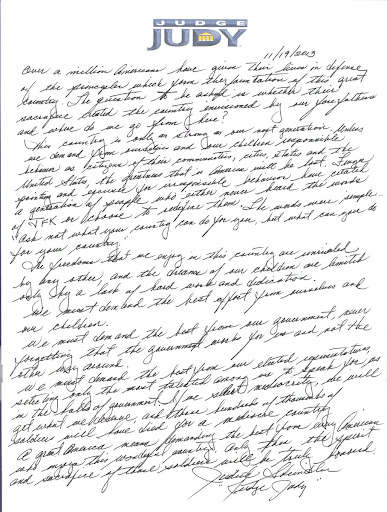 JUDGE
JUDY
11/19/2013
Over a million Americans have given their lives in defense
of the principles which form the foundation of this great
country. The question to be asked is whether their
sacrifice created the country envisioned by our forefathers
and where do we go from here?
This country is only as strong as our next generation. Unless
we demand from ourselves and our children responsible
behavior as citizens of their communities, cities, states and the
United States the greatness that is America will be lost. Finger
pointing and excuses for irresponsible behavior have created
a generation of people who either never heard the words
of JFK or choose to redefine them. The words were simple...
"Ask not what your country can do for you, but what can you do
for your country."
The freedoms that we enjoy in this country are unrivaled
by any other, and the dreams of our children are limited
only by a lack of hard work and dedication.
We must demand the best effort from ourselves and
our children.
We must demand the best from our government, never
forgetting that the government works for us and not the
other way around.
We must demand the best from our elected representatives
selecting only the most talented among us to speak for us
in the halls of government. If we select mediocrity, we will
get what we deserve, and those hundreds of thousands of
soldiers will have died for a mediocre country.
A great America means demanding the best from every American
who enjoys this wonderful country. Only then the spirit
and sacrifice of those soldiers will be truly honored.
Judith Sheindlin
"Judge Judy"